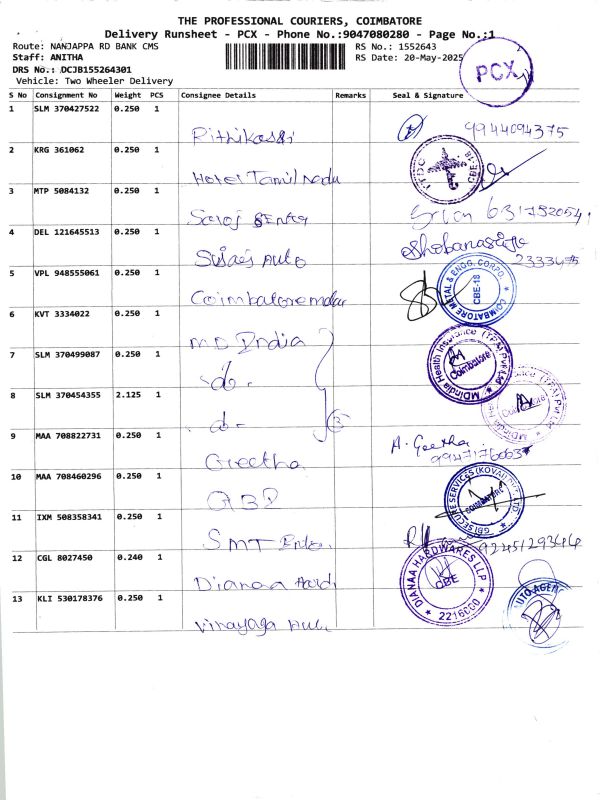 THE PROFESSIONAL COURIERS, COIMBATORE
Delivery Runsheet - PCX - Phone No.:9047080280 - Page No.:1
Route: NANJAPPA RD BANK CMS
RS No.: 1552643
Staff: ANITHA
RS Date: 20-May-2025
DRS No.: DCJB155264301
Vehicle: Two Wheeler Delivery
PCX
S No Consignment No Weight PCS Consignee Details Remarks Seal & Signature
1 SLM 370427522 0.250 1
9944094375
2 KRG 361062 0.250 1
Hotel Tamil Nadu
TTDC
3 MTP 5084132 0.250 1
Saroj
4 DEL 121645513 0.250 1
Auto
2333475
5 VPL 948555061 0.250 1
Coimbatore
COIMBATORE METAL & ENGG. CORPO. CBE-18
6 KVT 3334022 0.250 1
MD India
MDIndia Health Insurance (TPA) Pvt Ltd Coimbatore
7 SLM 370499087 0.250 1
-do-
8 SLM 370454355 2.125 1
-do-
3
9 MAA 708822731 0.250 1
Geetha
A. Geetha
10 MAA 708460296 0.250 1
GBI
GBI SECURE SERVICES COIMBATORE
11 IXM 508358341 0.250 1
SMT Ents.
12 CGL 8027450 0.240 1
Dianaa
DIANAA HARDWARES LLP CBE 2216000
13 KLI 530178376 0.250 1
Vinayaga
AUTO AGEN